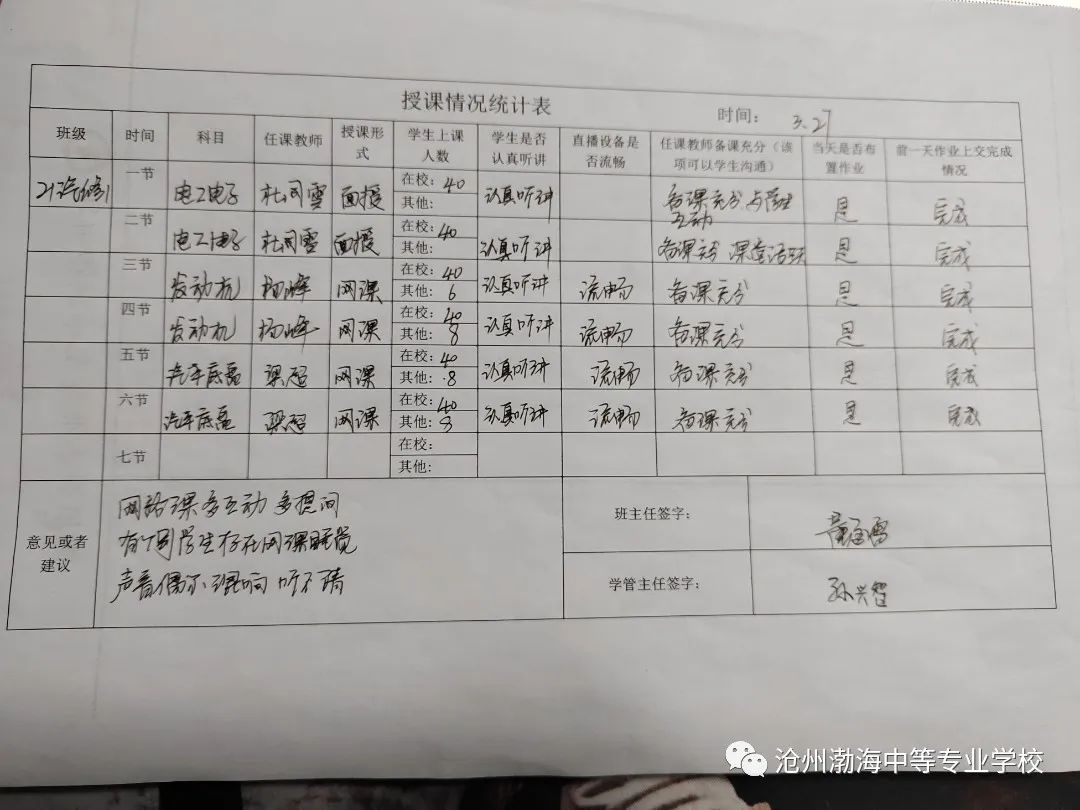 授课情况统计表 时间： 3.27
班级 时间 科目 任课教师 授课形式 学生上课人数 学生是否认真听讲 直播设备是否流畅 任课教师备课充分（该项可以学生沟通） 当天是否布置作业 前一天作业上交完成情况
21汽修1 一节 电工电子 杜同雪 面授 在校：40 其他： 认真听讲 备课充分 与学生互动 是 完成
二节 电工电子 杜同雪 面授 在校：40 其他： 认真听讲 备课充分 课堂活跃 是 完成
三节 发动机 杨峰 网课 在校：40 其他：6 认真听讲 流畅 备课充分 是 完成
四节 发动机 杨峰 网课 在校：40 其他：8 认真听讲 流畅 备课充分 是 完成
五节 汽车底盘 梁超 网课 在校：40 其他：8 认真听讲 流畅 备课充分 是 完成
六节 汽车底盘 梁超 网课 在校：40 其他：8 认真听讲 流畅 备课充分 是 完成
七节 在校： 其他：
意见或者建议
网络课多互动 多提问
有个别学生存在网课睡觉
声音偶尔混响 听不清
班主任签字：
学管主任签字： 孙兴智
沧州渤海中等专业学校